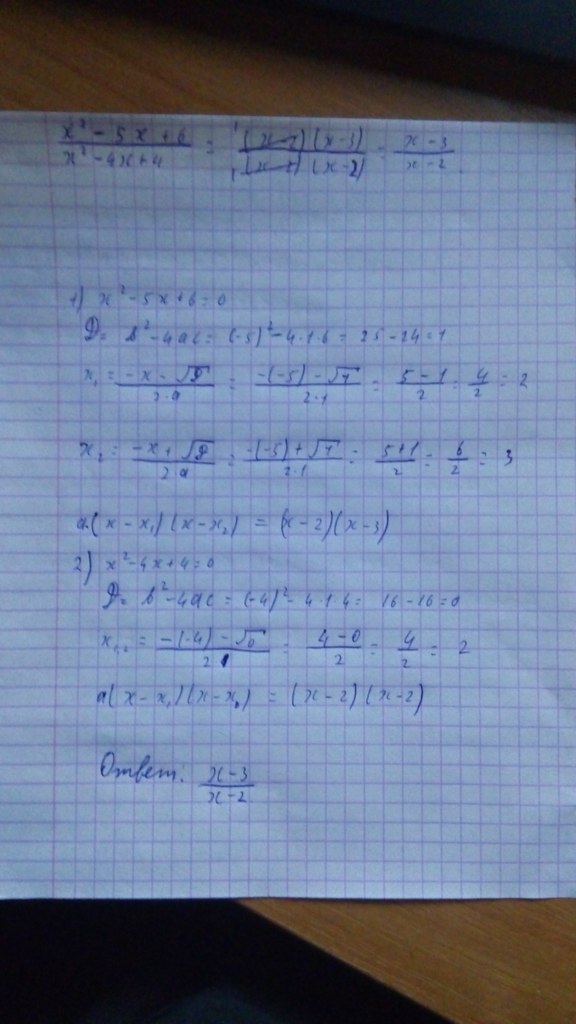 x² - 5x + 6 / x² - 4x + 4 = (x-2)(x-3) / (x-2)(x-2) = x-3 / x-2
1) x² - 5x + 6 = 0
D = b² - 4ac = (-5)² - 4·1·6 = 25 - 24 = 1
x₁ = -x - √D / 2·a = -(-5) - √1 / 2·1 = 5-1 / 2 = 4/2 = 2
x₂ = -x + √D / 2a = -(-5) + √1 / 2·1 = 5+1 / 2 = 6/2 = 3
a(x-x₁)(x-x₂) = (x-2)(x-3)
2) x² - 4x + 4 = 0
D = b² - 4ac = (-4)² - 4·1·4 = 16 - 16 = 0
x₁,₂ = -(-4) - √0 / 2·1 = 4-0 / 2 = 4/2 = 2
a(x-x₁)(x-x₂) = (x-2)(x-2)
Ответ: x-3 / x-2